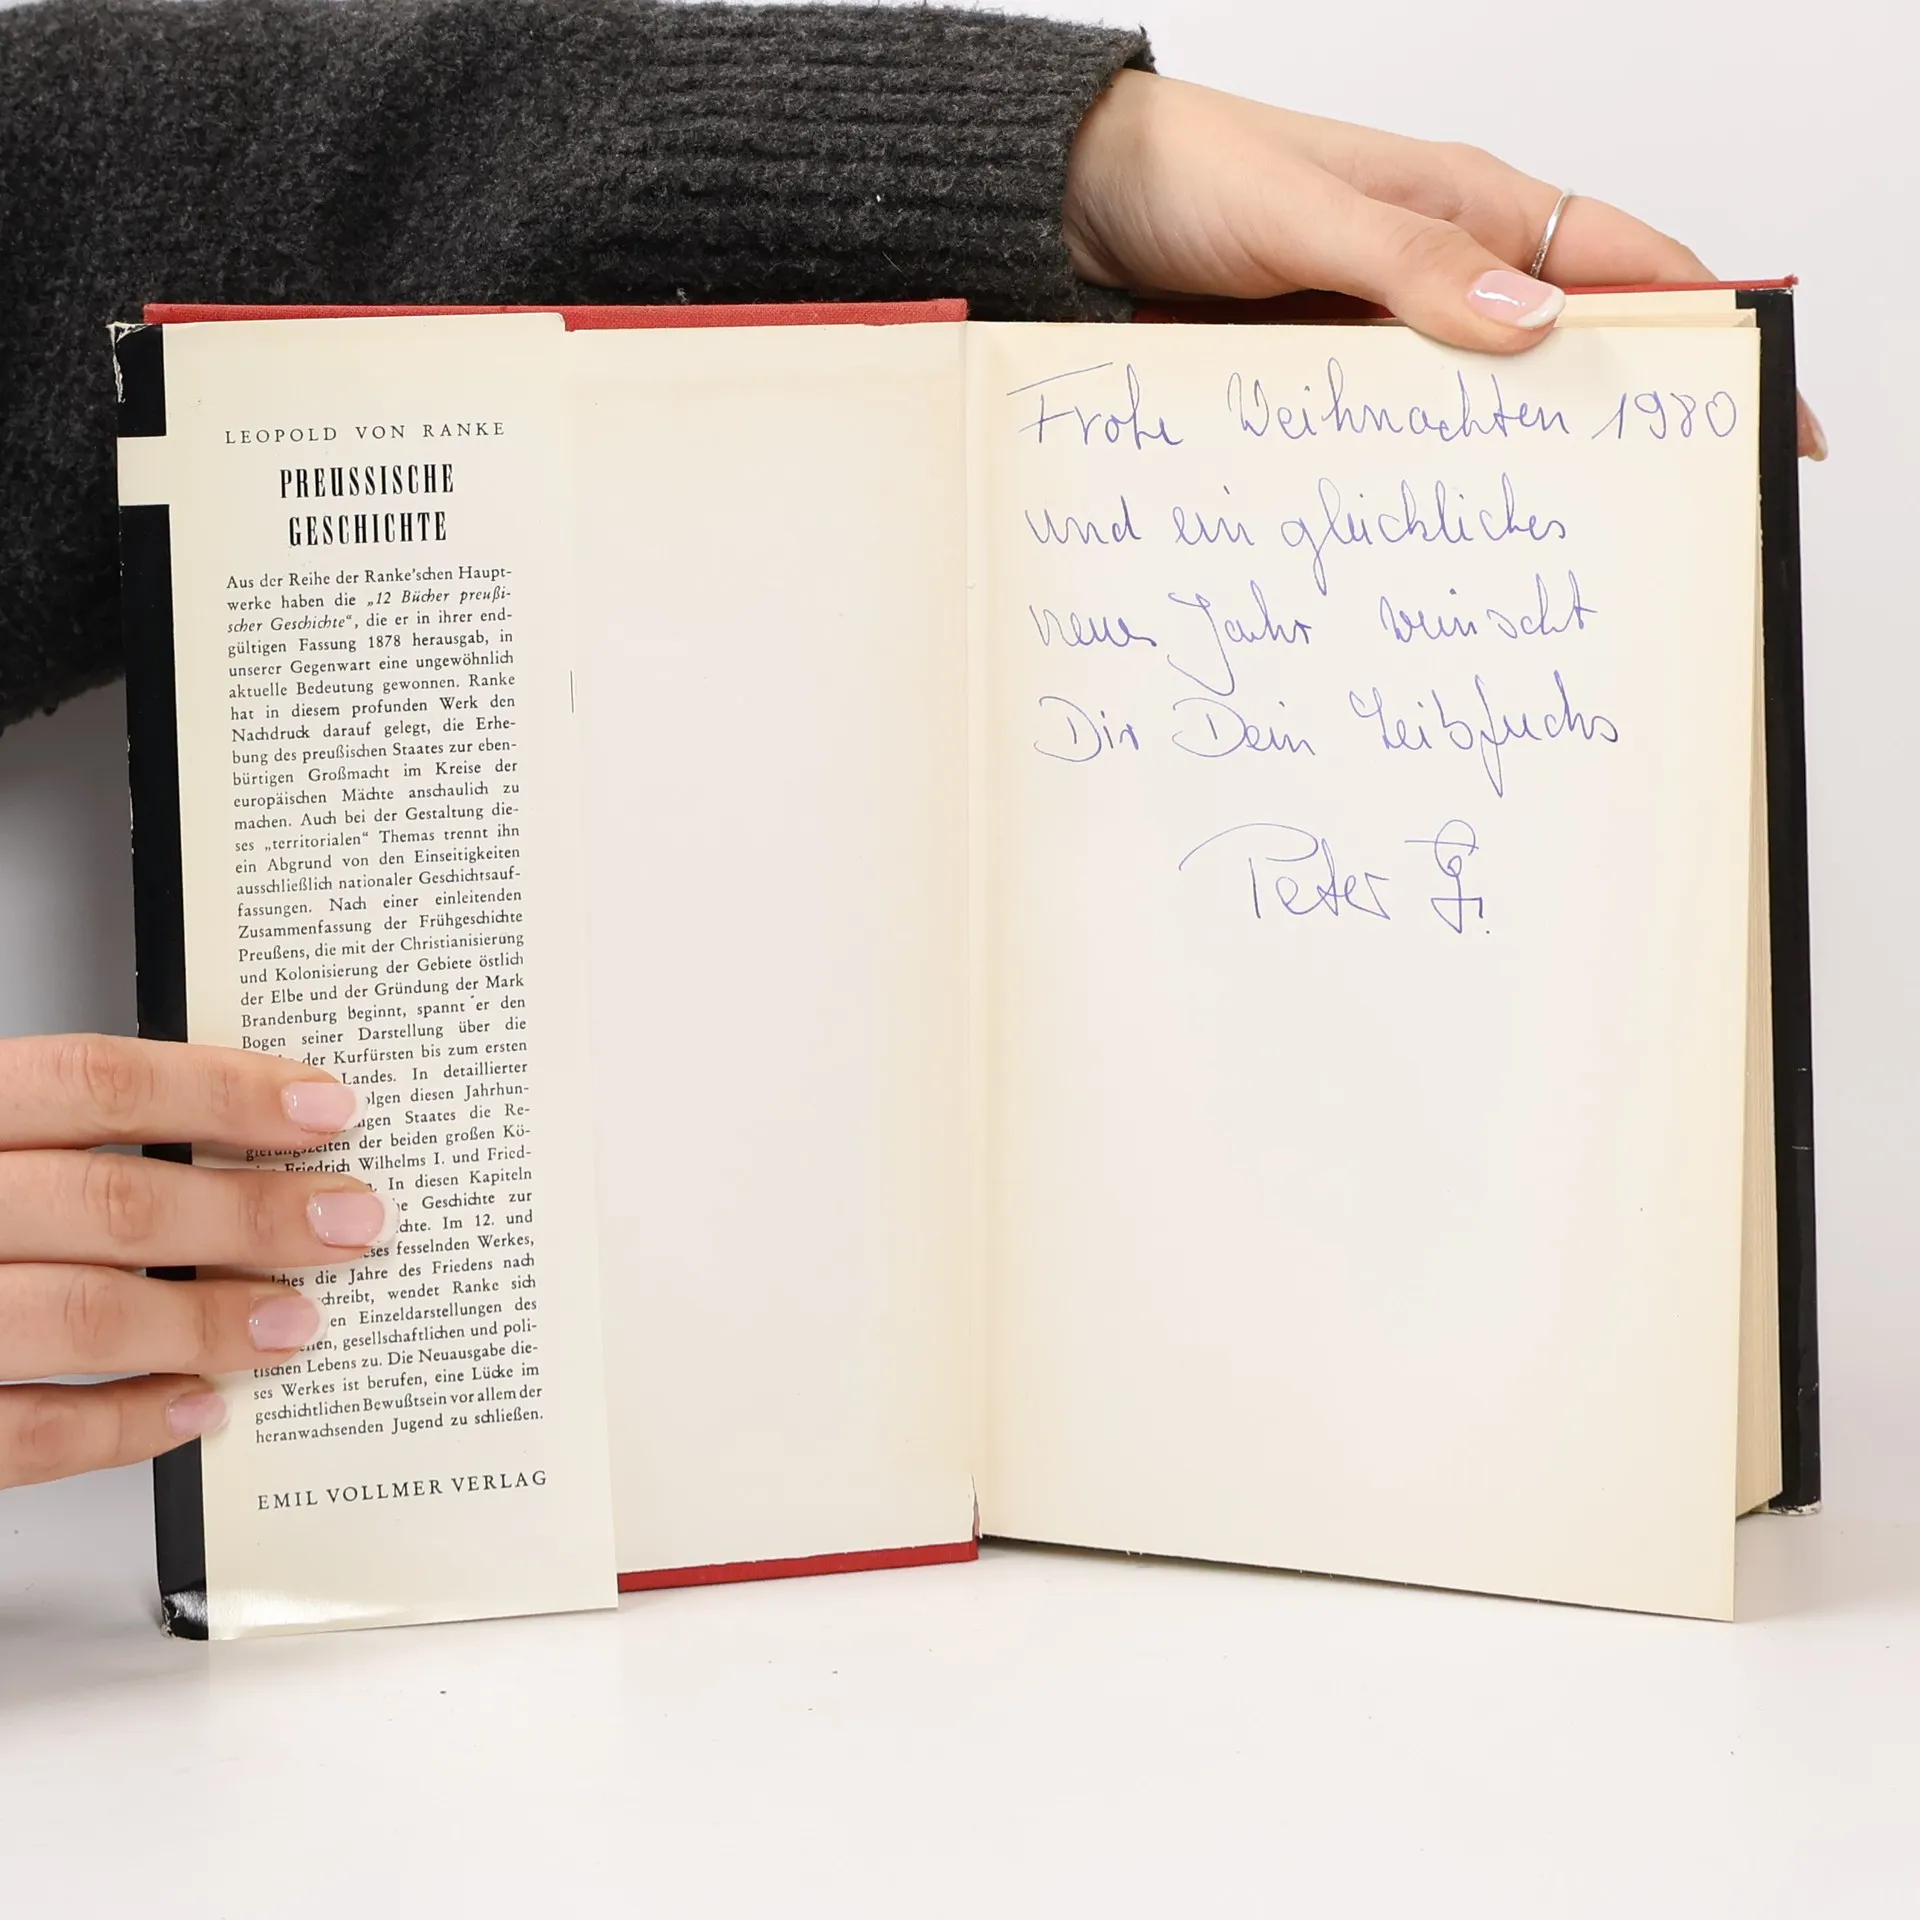 LEOPOLD VON RANKE
PREUSSISCHE
GESCHICHTE
Aus der Reihe der Ranke'schen Haupt-
werke haben die „12 Bücher preußi-
scher Geschichte“, die er in ihrer end-
gültigen Fassung 1878 herausgab, in
unserer Gegenwart eine ungewöhnlich
aktuelle Bedeutung gewonnen. Ranke
hat in diesem profunden Werk den
Nachdruck darauf gelegt, die Erhe-
bung des preußischen Staates zur eben-
bürtigen Großmacht im Kreise der
europäischen Mächte anschaulich zu
machen. Auch bei der Gestaltung die-
ses „territorialen“ Themas trennt ihn
ein Abgrund von den Einseitigkeiten
ausschließlich nationaler Geschichtsauf-
fassungen. Nach einer einleitenden
Zusammenfassung der Frühgeschichte
Preußens, die mit der Christianisierung
und Kolonisierung der Gebiete östlich
der Elbe und der Gründung der Mark
Brandenburg beginnt, spannt er den
Bogen seiner Darstellung über die
der Kurfürsten bis zum ersten
Landes. In detaillierter
diesen Jahrhun-
Staates die Re-
gierungszeiten der beiden großen Kö-
Friedrich Wilhelms I. und Fried-
In diesen Kapiteln
Geschichte zur
Im 12. und
fesselnden Werkes,
die Jahre des Friedens nach
wendet Ranke sich
Einzeldarstellungen des
gesellschaftlichen und poli-
tischen Lebens zu. Die Neuausgabe die-
ses Werkes ist berufen, eine Lücke im
geschichtlichen Bewußtsein vor allem der
heranwachsenden Jugend zu schließen.
EMIL VOLLMER VERLAG
Frohe Weihnachten 1980
und ein glückliches
neues Jahr wünscht
Dir Dein Leibfuchs
Peter G.